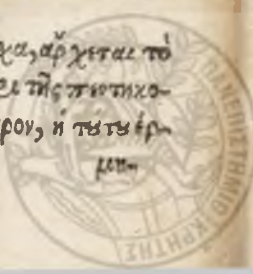 χα, ἄρχεται τὸ
τῆς πεντηκο-
ρον, ἢ τούτου ἑρ-
μην-
ΠΑΝΕΠΙΣΤΗΜΙΟ ΚΡΗΤΗΣ